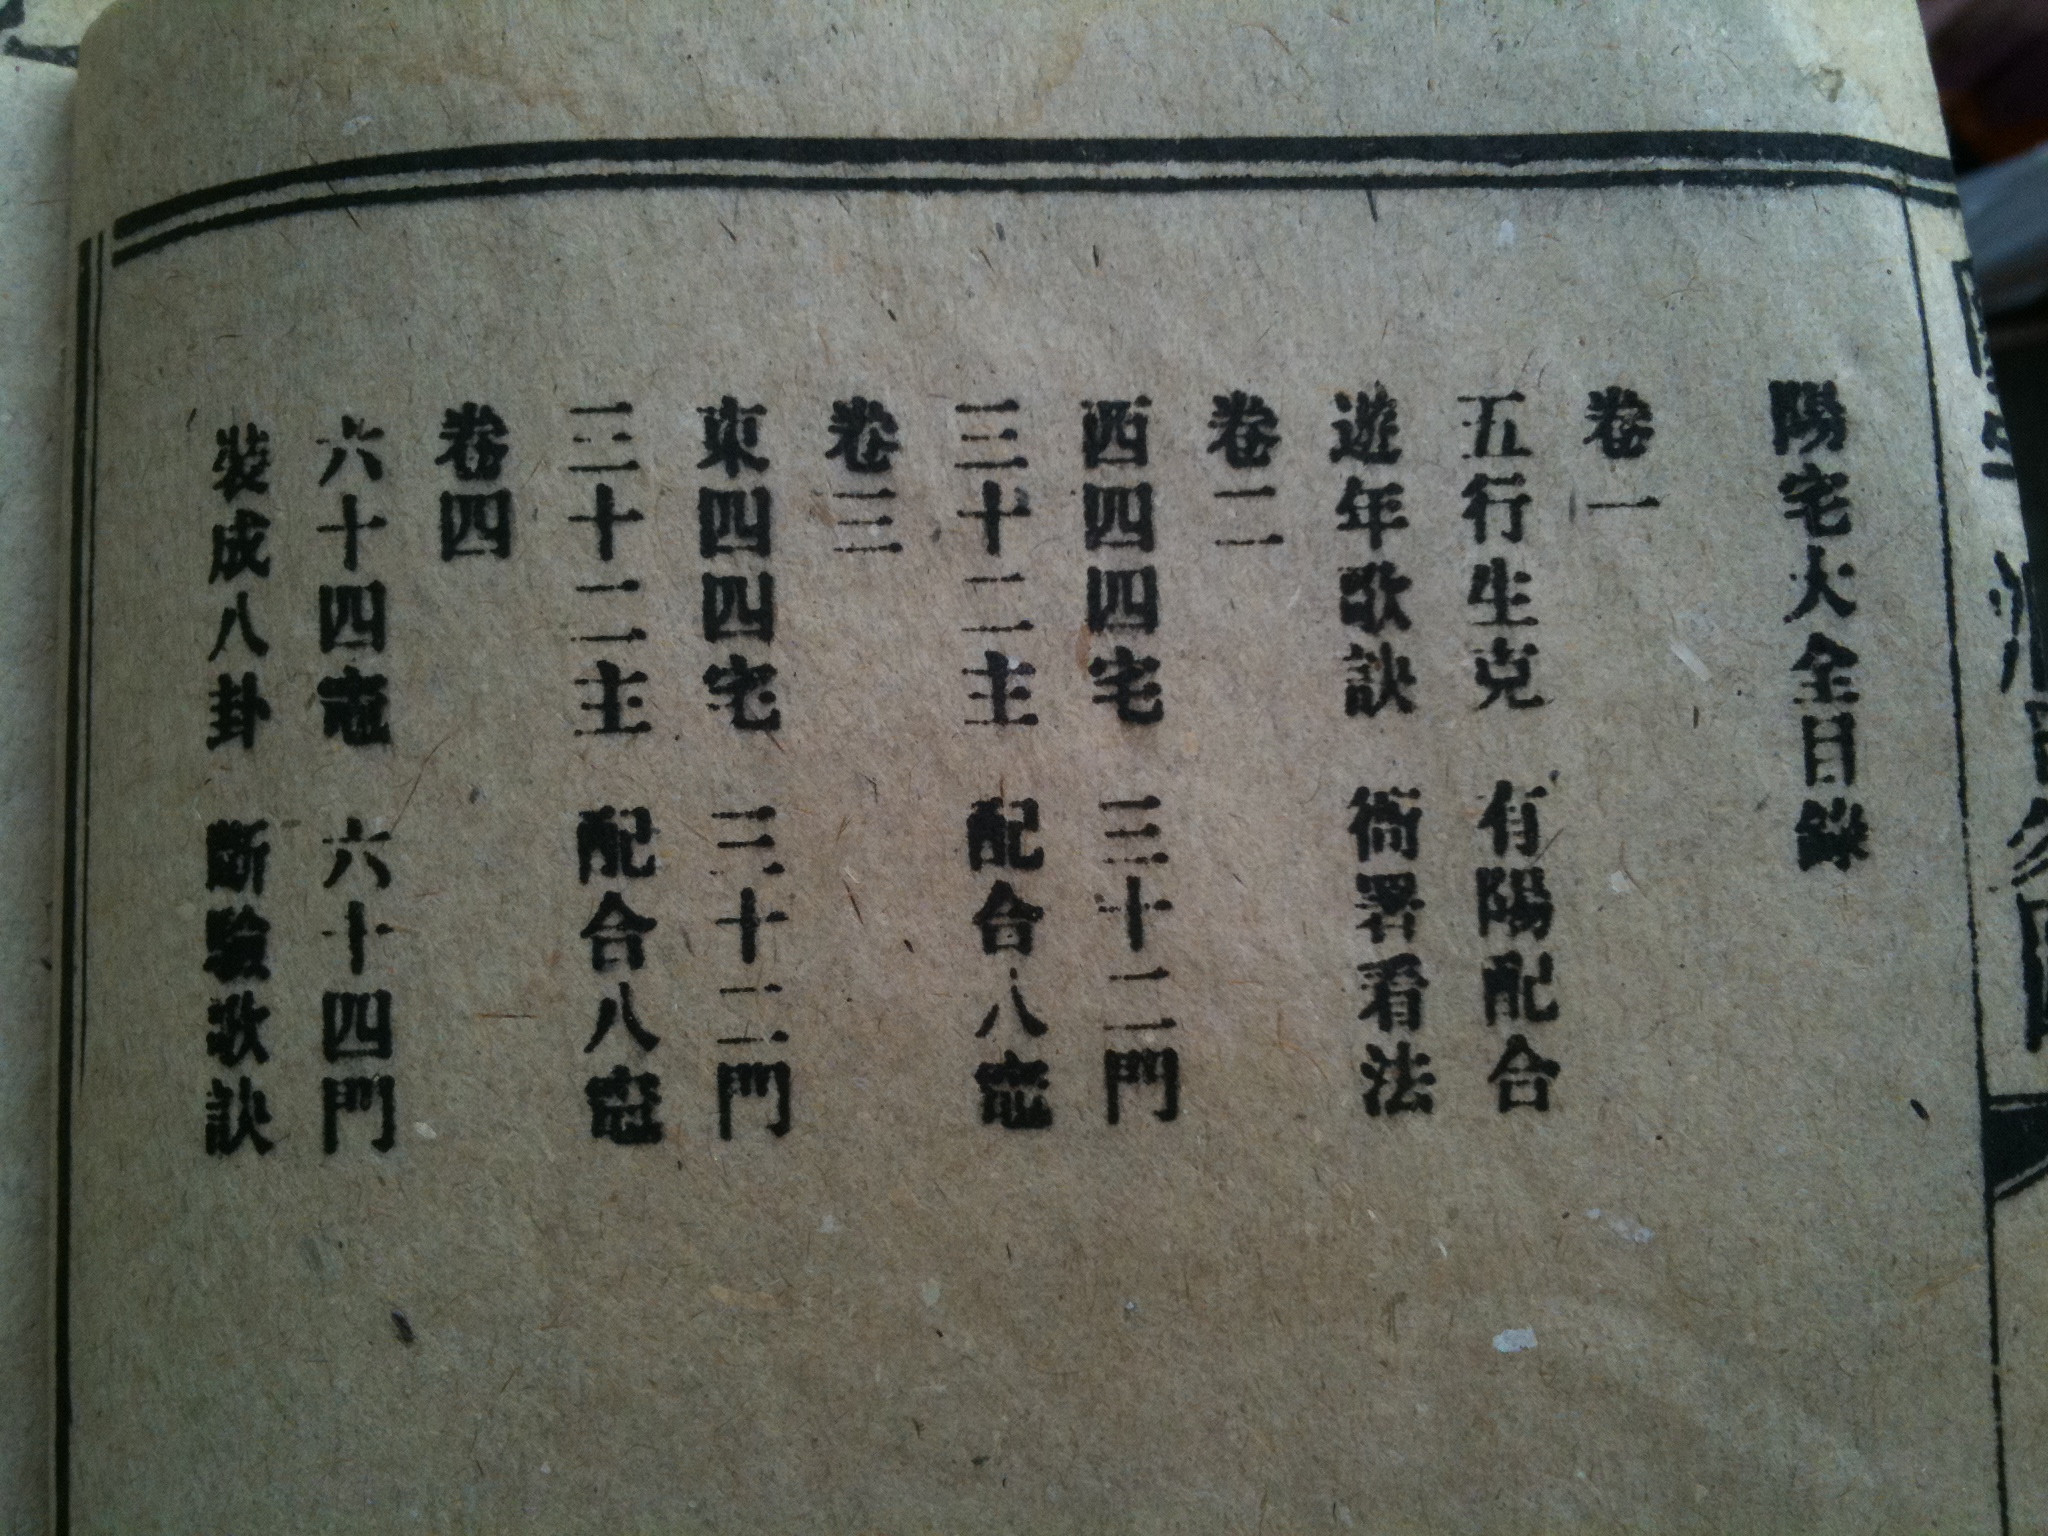 陽宅大全目錄
卷一
五行生克 有陽配合
遊年歌訣 衙署看法
卷二
西四四宅 三十二門
三十二主 配合八竈
卷三
東四四宅 三十二門
三十二主 配合八竈
卷四
六十四竈 六十四門
裝成八卦 斷驗歌訣